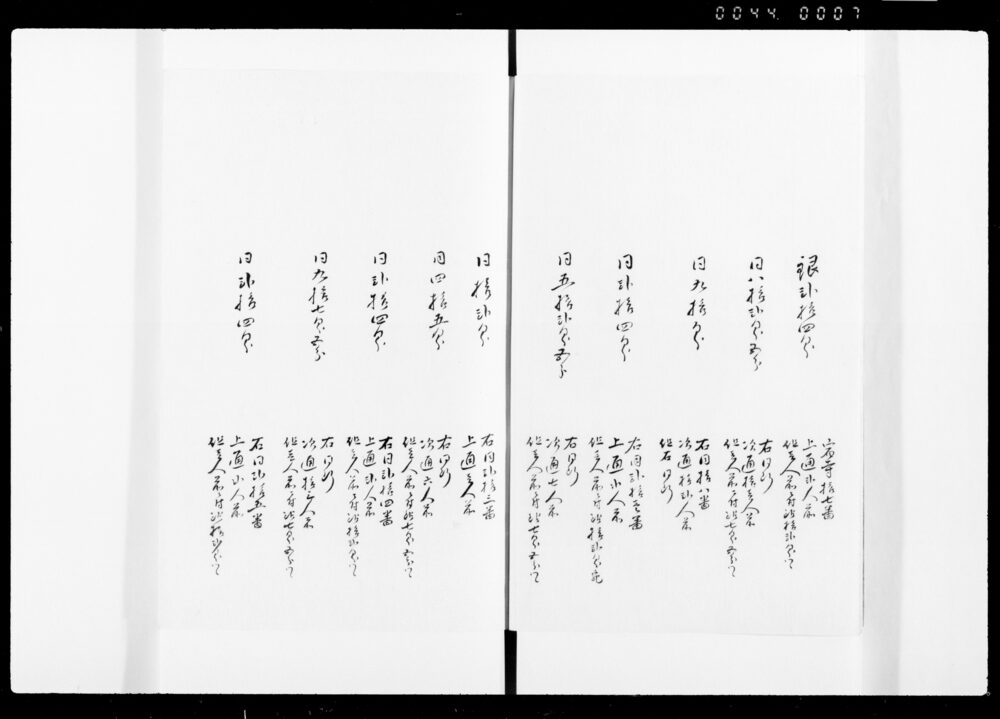 0044 0007
銀弐拾四匁
寺拾七番
上通弐人前
但壱人前ニ付銀拾弐匁ツヽ
同八拾弐匁五分
右同断
次通拾壱人前
但壱人前ニ付銀七匁五分ツヽ
同九拾匁
右同拾八番
次通拾弐人前
但右同断
同弐拾四匁
右同弐拾壱番
上通弐人前
但壱人前ニ付銀拾弐匁宛
同五拾弐匁五分
右同断
次通七人前
但壱人前ニ付銀七匁五分ツヽ
同拾弐匁
右同弐拾三番
上通壱人前
同四拾五匁
右同断
次通六人前
但壱人前ニ付銀七匁五分ツヽ
同弐拾四匁
右同弐拾四番
上通弐人前
但壱人前ニ付銀拾弐匁ツヽ
同九拾七匁五分
右同断
次通拾三人前
但壱人前ニ付銀七匁五分ツヽ
同弐拾四匁
右同弐拾五番
上通弐人前
但壱人前ニ付銀拾弐匁ツヽ